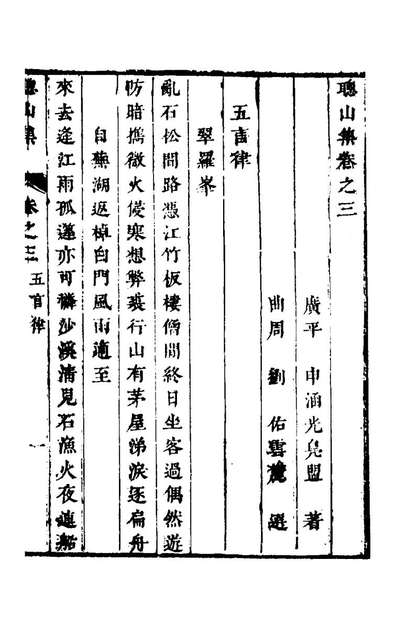 聰山集卷之三
廣平　申涵光鳧盟　著
曲周　劉　佑雲麓　選
五言律
翠羅峯
亂石松間路憑江竹板樓僧閒終日坐客過偶然遊
防暗擕微火侵寒想弊裘行山有茅屋涕淚逐扁舟
自蕪湖返棹白門風雨適至
來去逢江雨孤蓬亦可憐沙溪清見石漁火夜連船
聰山集　卷之三　五言律　一